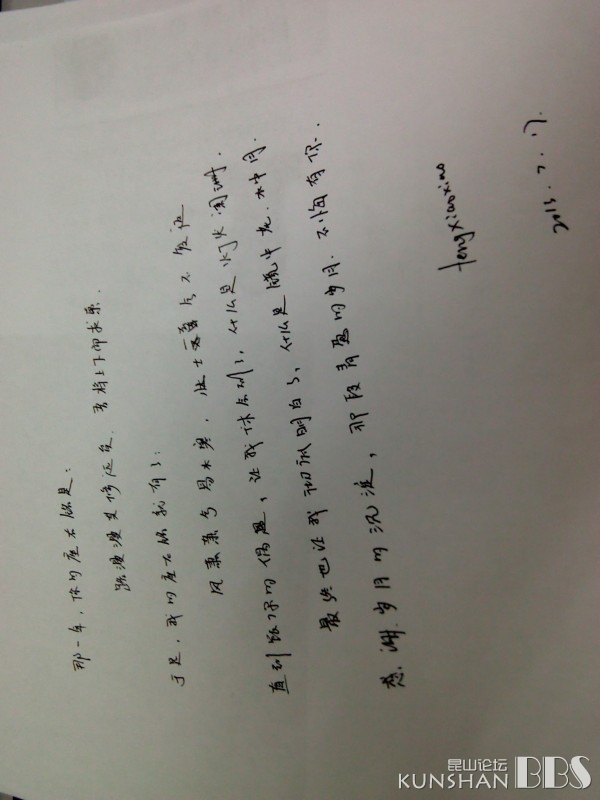 那一年，你的座右铭是：
路漫漫其修远兮 吾将上下而求索.
于是，我的座右铭就有了：
风萧萧兮易水寒，壮士一去兮不复返
直到跟你的偶遇，让我体会到了，什么是灯火阑珊.
最终也让我彻底明白了，什么是镜中花.水中月.
感谢岁月的沉淀，那段青涩的岁月.不悔有你..
fengxiaoxiao
2013.7.17.
昆山论坛
KUNSHAN BBS